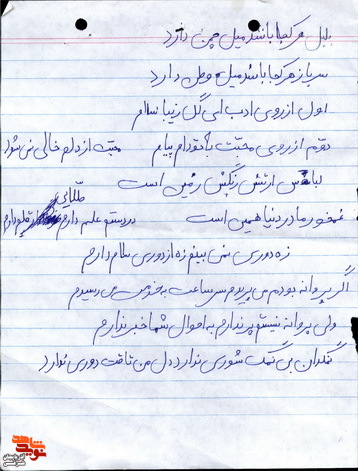 بلبل هر کجا باشد میل چمن دارد
سرباز هر کجا باشد میل وطن دارد
اول از روی ادب ای گل زیبا سلام
دوم از روی محبت با تو دارم پیام محبت از دلم خالی نمی شود
لباس ارتش رنگش زمین است
غمخور مادر دنیا همین است
در دستم علم دارم قلم دارم طلائی
زه دوری نمی بینم زه از دوری سلام دارم
اگر پروانه بودم می پریدم سر ساعت به خدمت می رسیدم
ولی پروانه نیستم پر ندارم به احوال شما خبر ندارم
نمکدان بی نمک شوری ندارد دل من تاقت دوری ندارد
شاهد
نوید